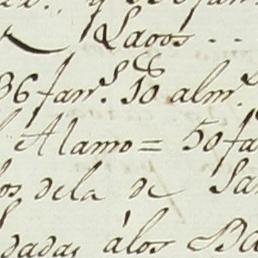 Lagos - -
36 fan.s 10 alm.s
Alamo = 50 fa
os dela de Sa
dadas álos Ba